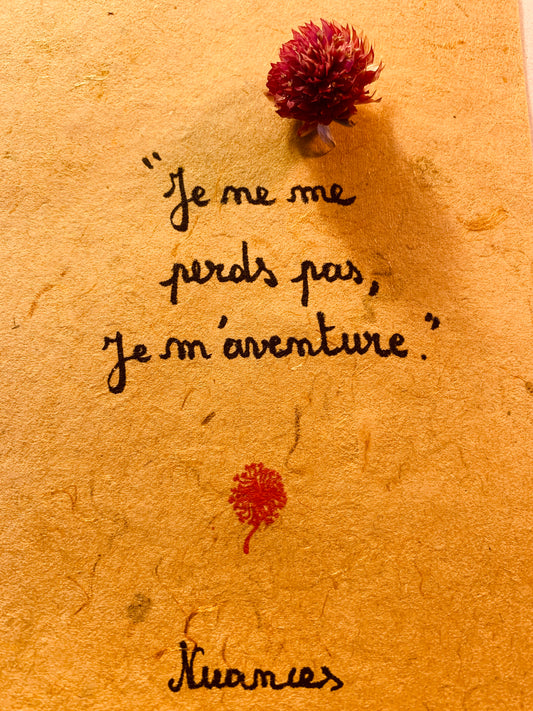 "Je ne me
perds pas,
Je m'aventure."
Nuances